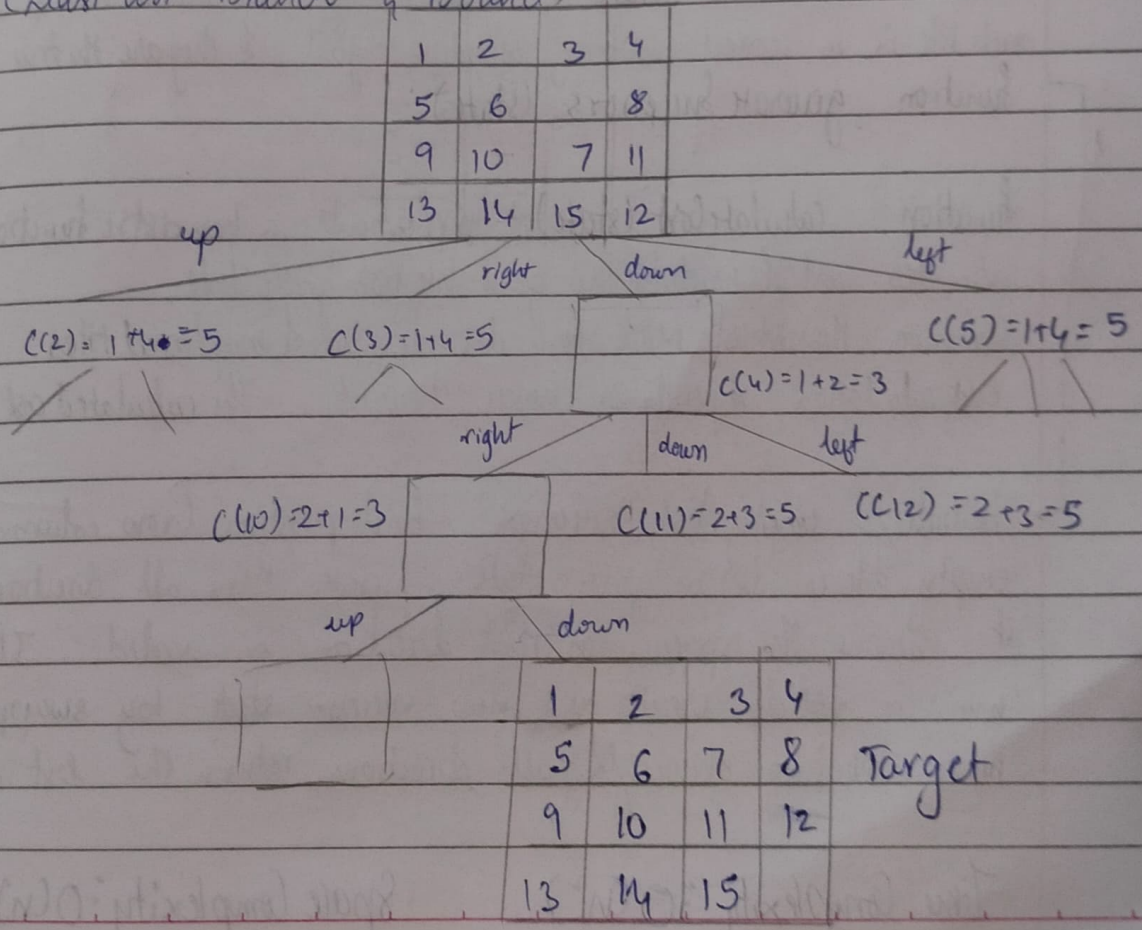 1 2 3 4
5 6 8
9 10 7 11
13 14 15 12
up right down left
C(2) = 1+4 = 5
C(3) = 1+4 = 5
C(4) = 1+2 = 3
C(5) = 1+4 = 5
right down left
C(10) = 2+1 = 3
C(11) = 2+3 = 5
C(12) = 2+3 = 5
up down
1 2 3 4
5 6 7 8
9 10 11 12
13 14 15
Target